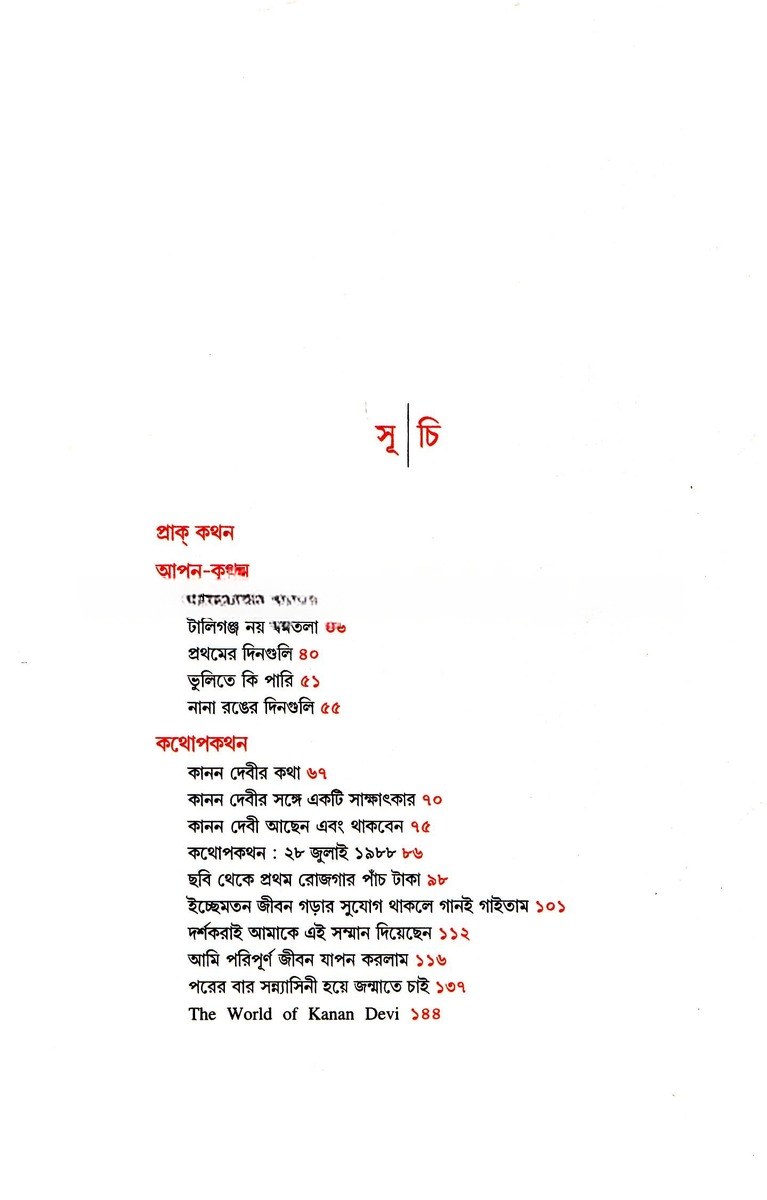 সূচি
প্রাক্ কথন
আপন-কথন
টালিগঞ্জ নয় তলা
প্রথমের দিনগুলি ৪০
ভুলিতে কি পারি ৫১
নানা রঙের দিনগুলি ৫৫
কথোপকথন
কানন দেবীর কথা ৬৭
কানন দেবীর সঙ্গে একটি সাক্ষাৎকার ৭০
কানন দেবী আছেন এবং থাকবেন ৭৫
কথোপকথন : ২৮ জুলাই ১৯৮৮ ৮৬
ছবি থেকে প্রথম রোজগার পাঁচ টাকা ৯৮
ইচ্ছেমতন জীবন গড়ার সুযোগ থাকলে গানই গাইতাম ১০১
দর্শকরাই আমাকে এই সম্মান দিয়েছেন ১১২
আমি পরিপূর্ণ জীবন যাপন করলাম ১১৬
পরের বার সন্ন্যাসিনী হয়ে জন্মাতে চাই ১৩৭
The World of Kanan Devi ১৪৪